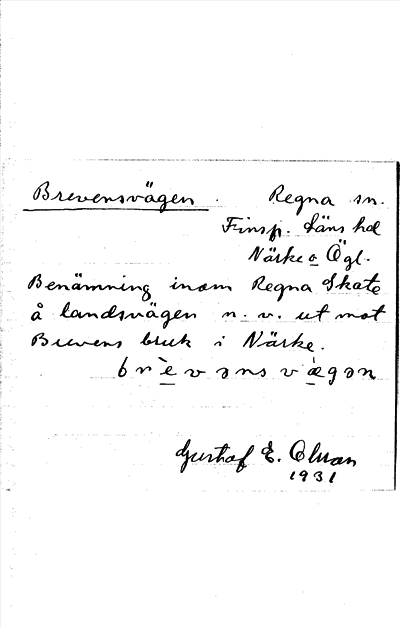 Brevensvägen. Regna sn.
Finsp. läns hd
Närke o Ögl.
Benämning inom Regna Skate
å landsvägen n. v. ut mot
Brevens bruk i Närke.
brè̱vənsvæ̱̀gən
Gustaf E.
1931